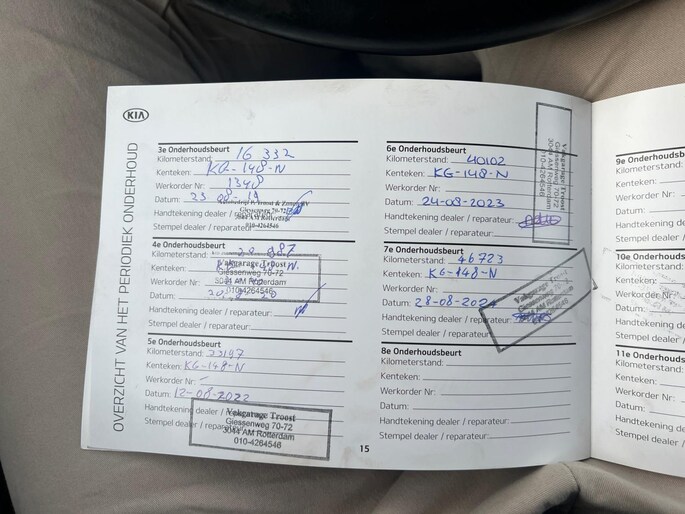 KIA
OVERZICHT VAN HET PERIODIEK ONDERHOUD
3e Onderhoudsbeurt
Kilometerstand: 16 332
Kenteken: KG-148-N
Werkorder Nr: 1348
Datum: 23 08-19
Handtekening dealer / reparateur:
& Zonen BV
Giessenweg 70-72
3044 AM Rotterdam
010-4264546
4e Onderhoudsbeurt
Kilometerstand:
Kenteken:
Vakgarage Troost
Giessenweg 70-72
Werkorder Nr:
3044 AM Rotterdam
010-4264546
Datum:
Handtekening dealer / reparateur:
Stempel dealer / reparateur:
5e Onderhoudsbeurt
Kilometerstand:
Kenteken: KG-148-N
Werkorder Nr:
Datum: 12-08-2022
Handtekening dealer /
Stempel dealer /
Vakgarage Troost
Giessenweg 70-72
3044 AM Rotterdam
010-4264546
6e Onderhoudsbeurt
Kilometerstand: 40102
Kenteken: KG-148-N
Werkorder Nr:
Datum: 24-08-2023
Handtekening dealer / reparateur:
Vakgarage Troost
Giessenweg 70-72
3044 AM Rotterdam
010-4264546
7e Onderhoudsbeurt
Kilometerstand: 46723
Kenteken: KG-148-N
Werkorder Nr:
Datum: 28-08-2024
Handtekening dealer / reparateur:
Stempel dealer / reparateur:
Vakgarage Troost
8e Onderhoudsbeurt
Kilometerstand:
Kenteken:
Werkorder Nr:
Datum:
Handtekening dealer / reparateur:
Stempel dealer / reparateur:
15
9e Onderhoudsb
Kilometerstand:
Kenteken:
Werkorder Nr:
Datum:
Handtekening
Stempel dealer
10e Onderhouds
Kilometerstand
Kenteken:
Werkorder Nr
Datum:
Handtekening
Stempel deale
11e Onderhouds
Kilometerstand
Kenteken:
Werkorder Nr:
Datum:
Handtekening d
Stempel dealer